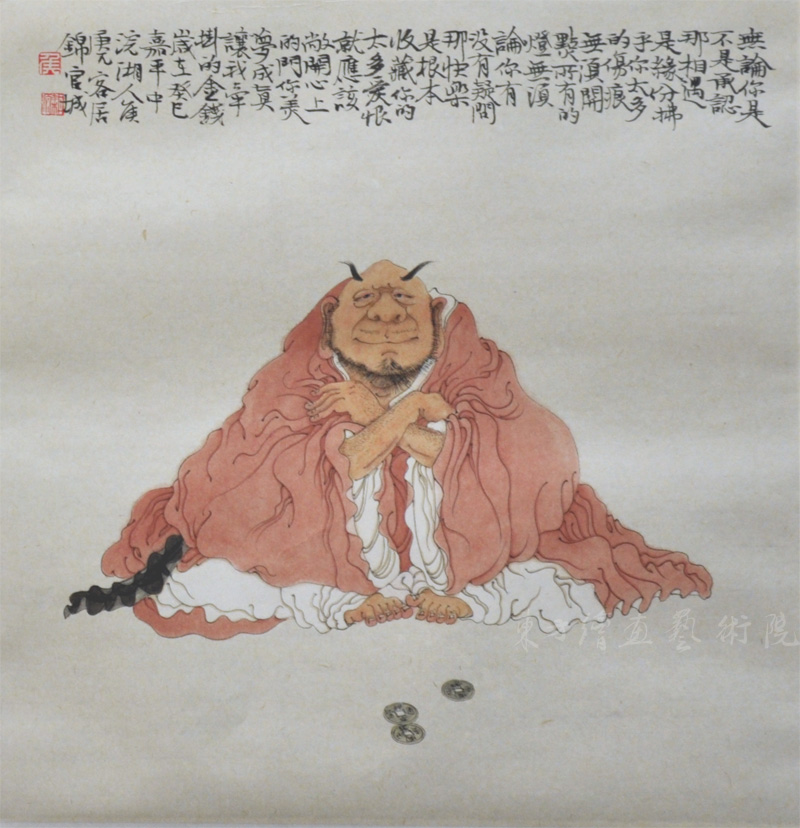 無論你是
不是承認
那相遇
是緣份拂
乎你太多
的傷痕
無須開
點所有的
燈無須
論你有
沒有疑問
那快樂
是根本
收藏你的
太多愛恨
就應該
敞開心上
的門你美
夢成真
讓我牽
掛的金錢
歲在癸巳
嘉平中
浣湖人侯
客居
錦官城
東方繪畫藝術院